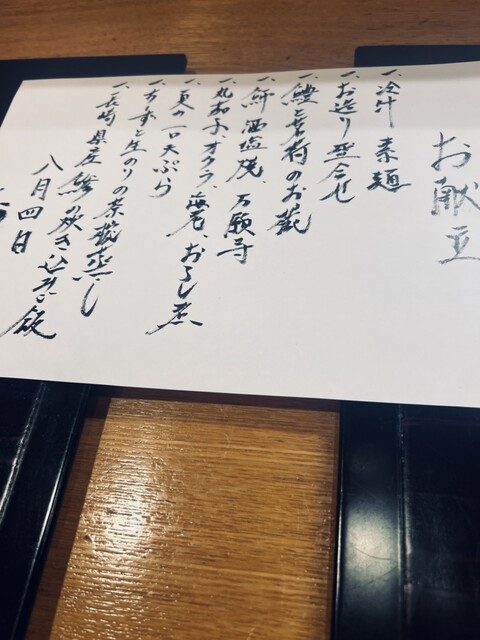 お献立
一、冷汁 素麺
一、お造り盛合せ
一、鱧と茗荷のお椀
一、鮃酒塩焼、万願寺
一、丸茄子、オクラ、海老、おろし煮
一、夏の一口天ぷら
一、あわびと生のりの茶碗蒸し
一、長崎県産 鯵の炊き込みご飯
八月四日